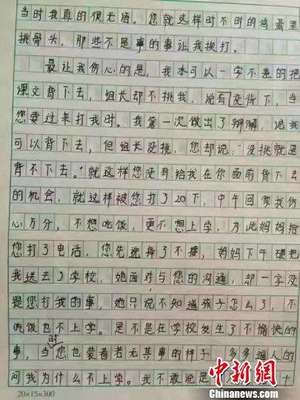 当时我真的很无语。您就这样时不时的鸡蛋里
挑骨头，那些不是事的事让我挨打。
最让我伤心的是，我本可以一字不差的把
课文背下去，组长却不挑我，说有没背下，当
您要过来打我时。我第一次做出了辩解，说我
可以背下去，但组长没挑，您却说，没挑就是
背不下去。就这样您没有给我在你面前背下去
的机会，就这样被您打了20下，中午回家我伤
心万分，不想吃饭，更不想上学，为此妈妈给
您打了电话，您先说有了不接，妈妈下午硬把
我送去了学校，她面对与您的沟通，却一字没
提您打我的事，她只说不知道孩子怎么了，不
吃饭也不上学。是不是在学校发生了不愉快的
事，当时您也装着若无其事的样子，多多逼人的
问我为什么不上学。我不敢说是
20×15=300
中新网